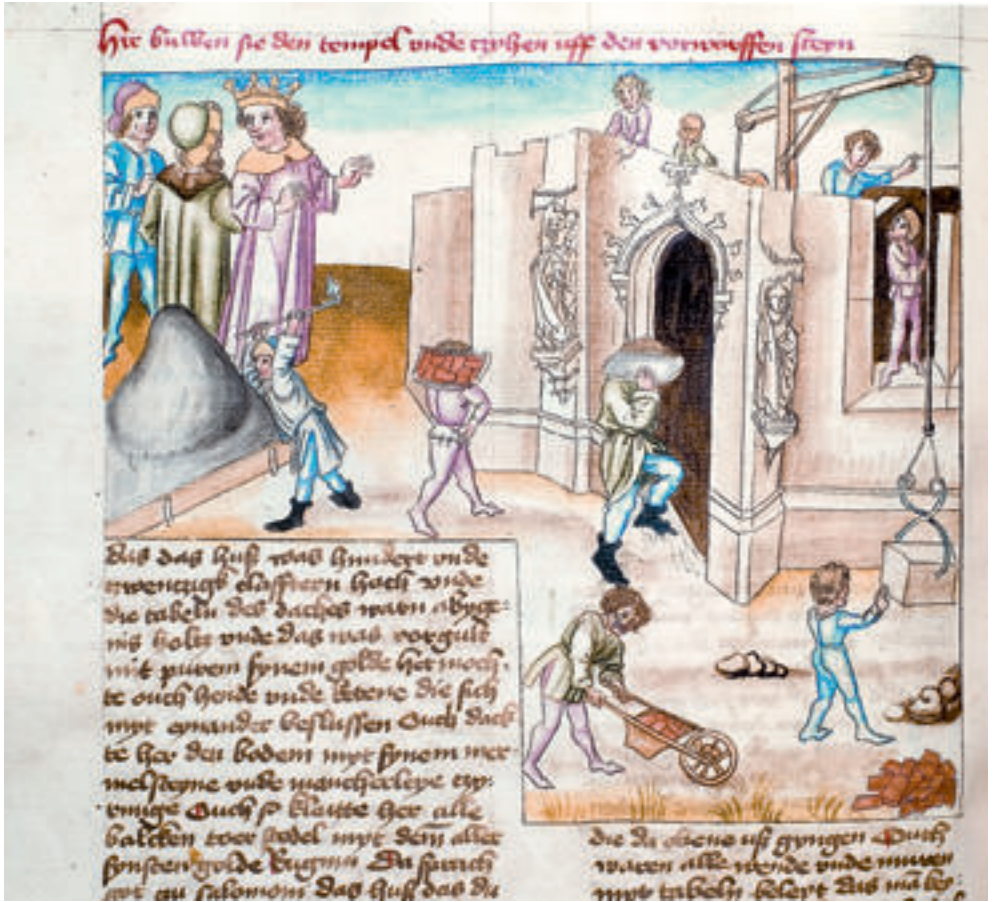 Hie buwen sie den tempel vnde czyhen uff den vorworffen steyn
das das huß was hundert vnde
twentzigk clafftern hoch vnde
die tabeln des daches warn
holtz vnde das was vorgult
mit purem fynem golde her moch-
te ouch hende vnde die sich
myt enander beslussen Ouch dack
te her den bodem myt fynem mer
melsteyne vnde mancherleye czy-
runge Ouch so kleitte her alle
balcken myt dem aller
fynsten golde Da sprach
got zu salomon das huß das du
die da obene uff gyngen Ouch
waren alle wende vnde muren
myt tabeln belegt das